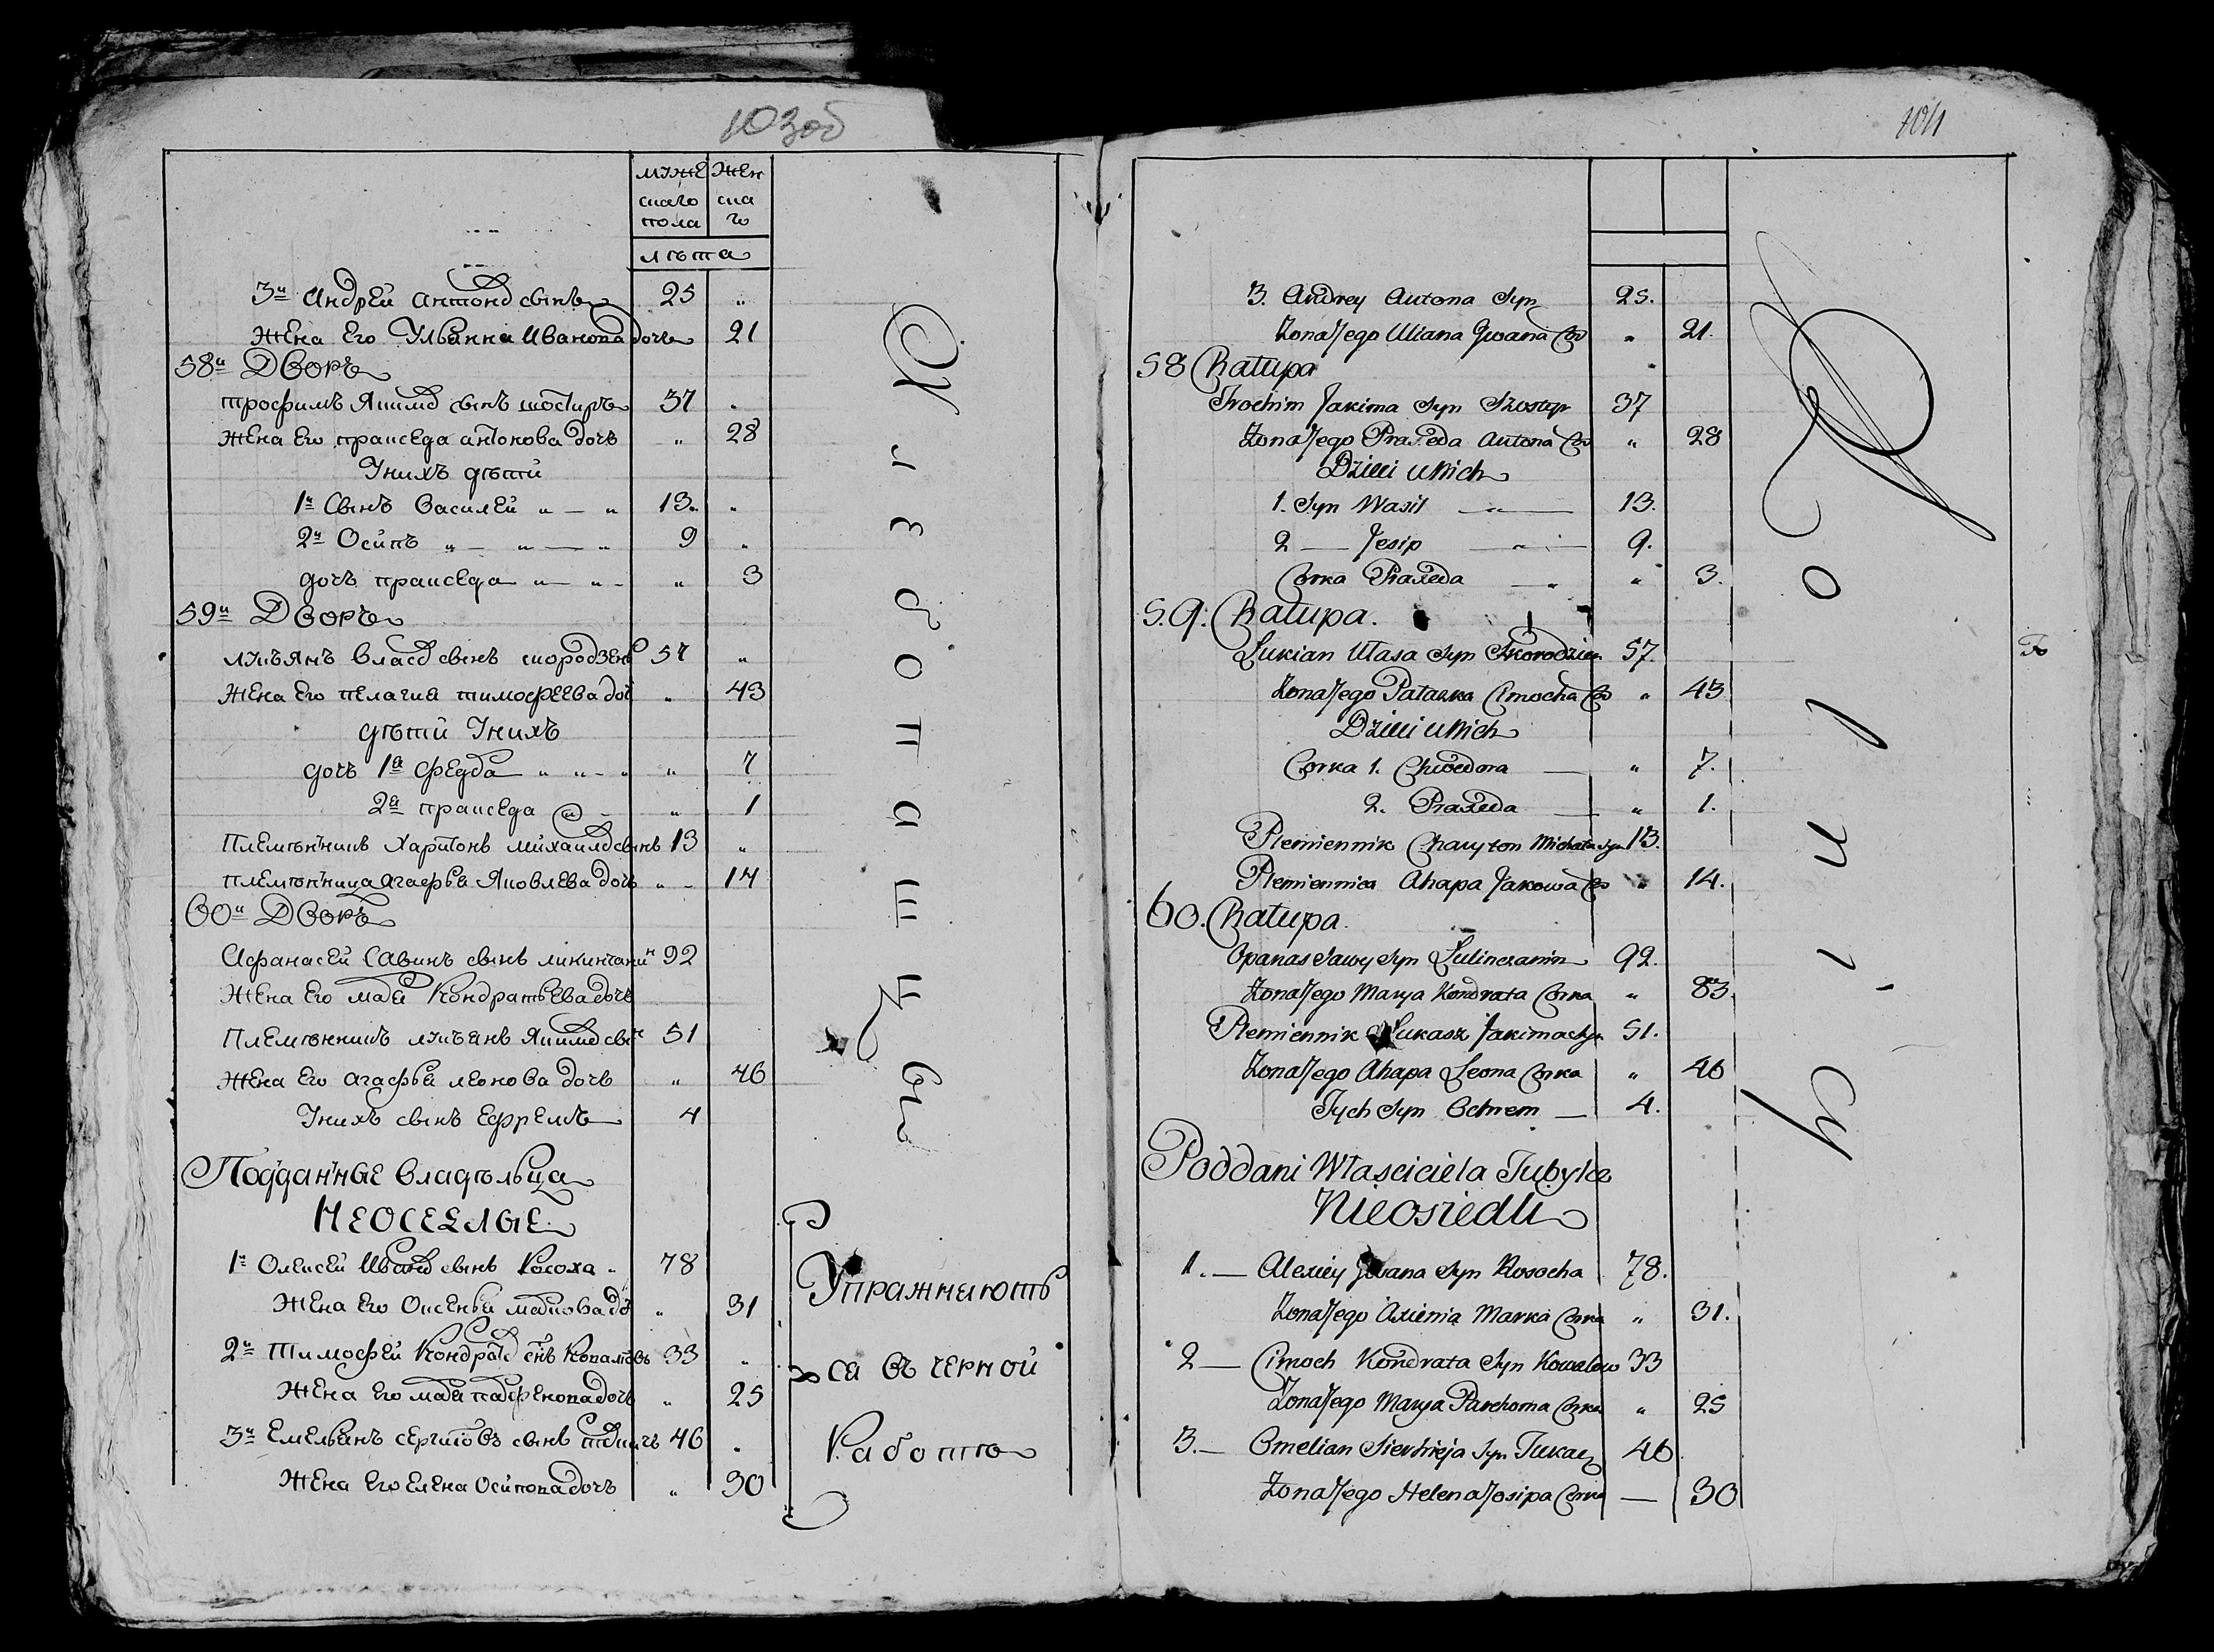 103об
муже
скаго
пола
жен
ска
го
лѣта
3й Андрей Антонов сынъ 25 „
жена его Ульянна Иванова дочь 21
58й Дворъ
трофимъ Якимов сынъ шостиръ 37 „
жена его пракседа антонова дочь „ 28
У нихъ дѣти
1й Сынъ Василей „ — „ 13 „
2й Осипъ „ — „ — „ 9 „
дочь пракседа „ — „ „ 3
59й Дворъ
лукьянъ Власов сынъ 57 „
жена его пелагия тимофеева доч „ 43
дѣти У нихъ
дочь 1я федора „ „ „ 7
2я пракседа „ 1
Племѣнникъ Харитонъ михаилов сынъ 13 „
племѣнница агафья Яковлева дочь „ 14
60й Дворъ
Афанасей Савинъ сынъ 92
жена его марья Кондратьева дочь
Племѣнникъ лукъянъ Якимов сын 51
жена его агафья леонова дочь „ 46
У нихъ сынъ Ефремъ 4
Подданные владѣльца
неоселые
1й Олексей Иванов сынъ Косоха 78
жена его Оксенья маркова до „ 31
2й Тимофей Кондратов снъ Коваловъ 33 „
жена его марья парфенова дочь „ 25
3й Емельянъ сергиевъ сынъ 46 „
жена его Елена Осипова дочь „ 30
Хлѣбопашцы
Упражняють
ся въ черной
работѣ
104
3. Andrey Antona Syn 25.
Zona Jego Uliana Jwana Cor „ 21.
58 Chałupa
Trochim Jakima Syn Szostyr 37
Zona Jego Praxeda Antona Cor „ 28
Dzieci u Nich
1. Syn Wasil — 13.
2 — Jesip — 9.
Corka Praxeda — „ 3.
59. Chałupa.
Łukian Ułasa Syn 57.
Zona Jego Pałaszka Cimocha Cor „ 43
Dzieci u Nich
Corka 1. Chwedora — „ 7.
2. Praxeda — „ 1.
Plemiennik Charyton Michała Syn 13.
Plemiennica Ahapa Jakowa Cor „ 14.
60. Chałupa.
Opanas Sawy Syn Lulinczanin 92.
Zona Jego Marya Kondrata Corka „ 83.
Plemiennik Łukasz Jakima Syn 51.
Zona Jego Ahapa Leona Corka „ 46
Tych Syn Ochrem — 4.
Poddani Własciciela Tubylce
Nieosiedli
1. — Alexiey Jwana Syn Kosocha 78.
Zona Jego Axienia Marka Corka „ 31.
2 — Cimoch Kondrata Syn Kowalow 33
Zona Jego Marya Parchoma Corka „ 25
3. — Omelian Sierhieja Syn Tukacz 46
Zona Jego Helena Josipa Corka — 30
Rolnicy